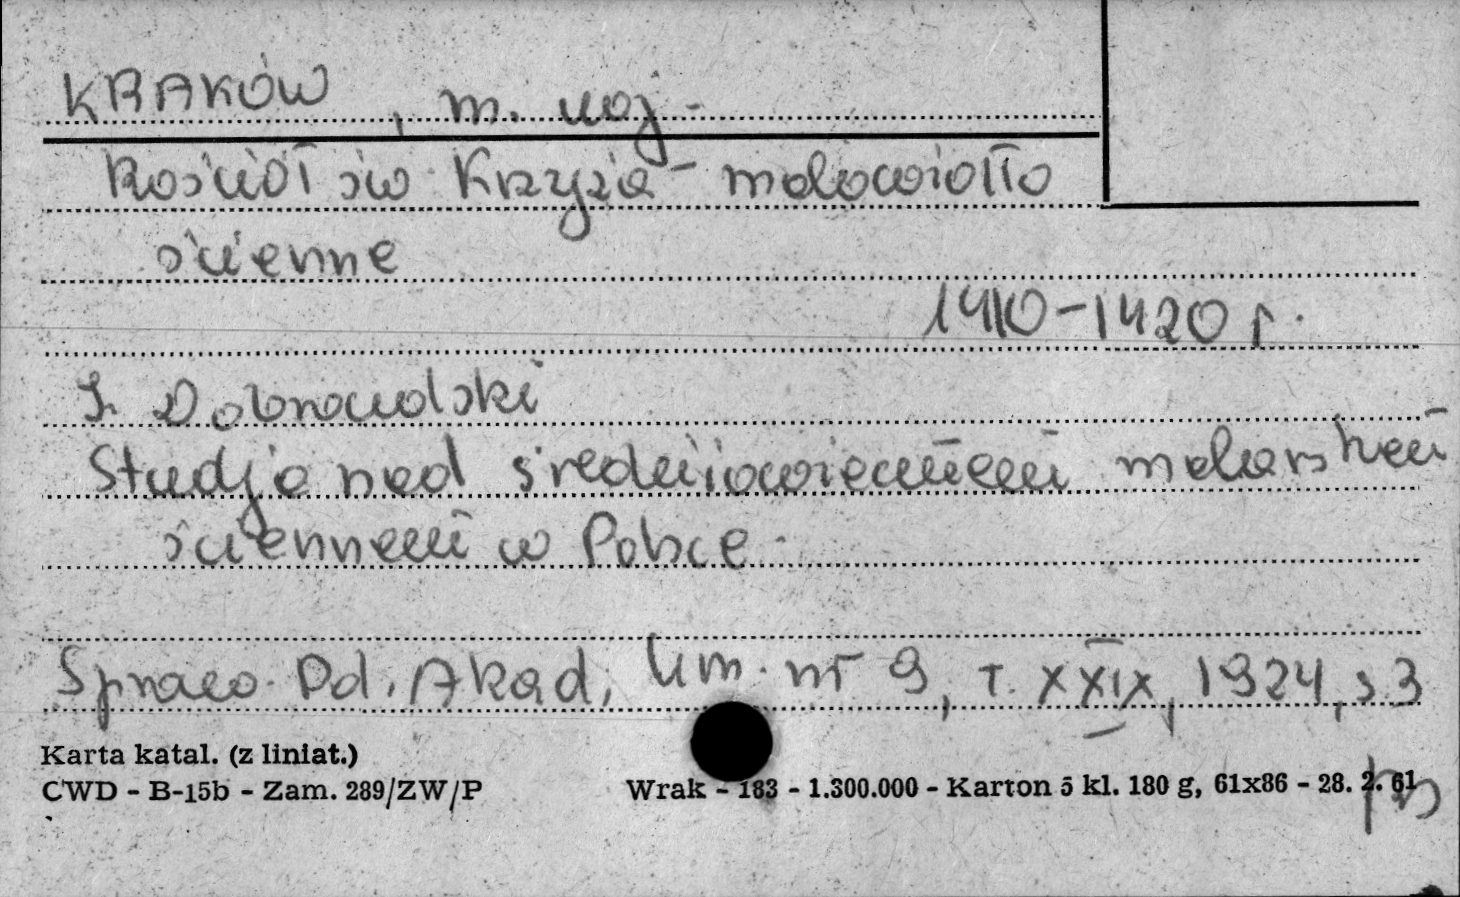 KRAKÓW, m. woj.
Kościół św. Krzyża - malowidło
ścienne
1410-1420 r.
J. Dobrowolski
Studja nad średniowiecznem malarstwem
ściennem w Polsce.
Spraw. Od. Akad. Um. nr 9, T. XXIX, 1924, s. 3
Karta katal. (z liniat.)
CWD - B-15b - Zam. 289/ZW/P
Wrak - 183 - 1.300.000 - Karton 5 kl. 180 g, 61x86 - 28. 2. 61